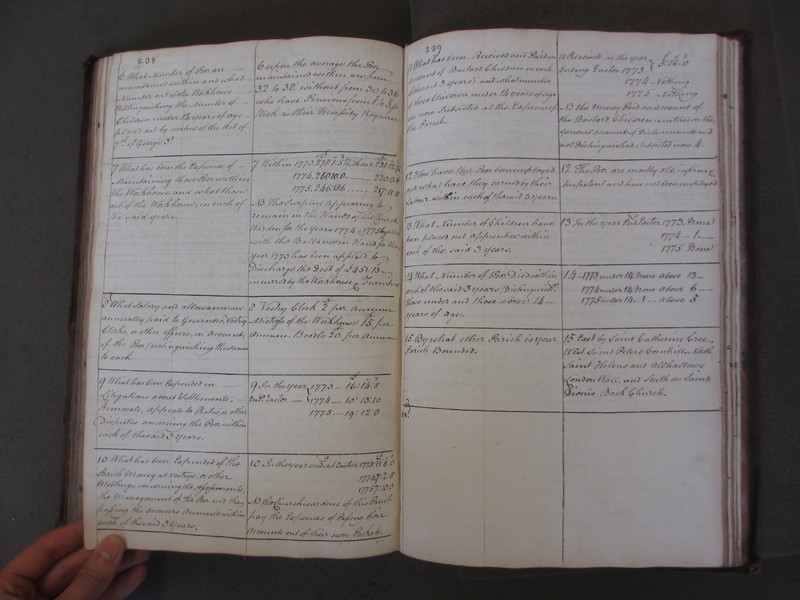 238
6 What Number of Poor are
maintained within and what
Number out of the Workhouse
Distinguishing the Number of
Children under 14 years of age
placed out by virtue of the Act of
7th of George 3d
6 upon the average the Poor
maintained within are from
32 to 38. without from 30 to 36
who have Pensions from
Week as their Necessity Requires
7 What has been the Expence of
Maintaining those Poor within
the Workhouse and what those
out of the Workhouse, in each of
the said years.
7 Within 1773
1774
1775
NB The Surplus Appearing to
remain in the Hands of the Church
Wardens for the years 1774 & 1775 together
with the Ballance in Hand for the
year 1773 has been applied to
Discharge the Debt of £451:13
incurred by the Workhouse
8 What Salary and allowance are
annually paid to Governors, Vestry
Clerks, or other officers, on Account
of the Poor, distinguishing the same
to each.
8 Vestry Clerk per annum
Mistress of the Workhouse 15 per
Annum. Beadle 20 per Annum
9 What has been Expended in
Litigations about Settlements,
Removals, Appeals to Rates, or other
Disputes concerning the Poor within
each of the said 3 Years.
9 In the year 1773 16:14:8
End. Easter 1774 10:13:10
1775 19:12:0
10 What has been Expended of the
Parish Money at vestrys, or other
Meetings, concerning the
the Management of the Poor and the
passing the overseers Accounts within
each of the said 3 Years.
10 In the year end. at Easter 1773
1774
1775
NB The Churchwardens of this Parish
pay the Expences of Passing their
Accounts out of their own Pocket.
239
11 What has been Received and Paid on
account of Bastard Children in each
of the said 3 years? and what number
of those Children under 14 years of age
are now Subsisted at the Expence of
the Parish.
11 Received in the year
ending Easter 1773
1774 Nothing
1775 Nothing
NB the Money Paid on account of
the Bastard Children is entered in the
General account of Disbursements and
not Distinguished, subsisted now 4.
12 How have the Poor been employed
and what have they earned by their
Labour within each of the said 3 years.
12 The Poor are mostly old, infirm &
Impotent and have not been employed
13 What Number of Children have
been placed out apprentice within
each of the said 3 years.
13 In the year End. Easter 1773 None
1774 1
1775 None
14 What Number of Poor Died within
each of the said 3 years, Distinguish
those under and those above 14
years of age.
14 1773 under 14 None above 13
1774 under 14 None above 6
1775 under 14 1 above 5
15 By what other Parish is your
Parish Bounded.
15 East by Saint Catherine Cree
West Saint Peters Cornhill, North
Saint Helens and Allhallows
London Wall, and South on Saint
Dionis Back Church.